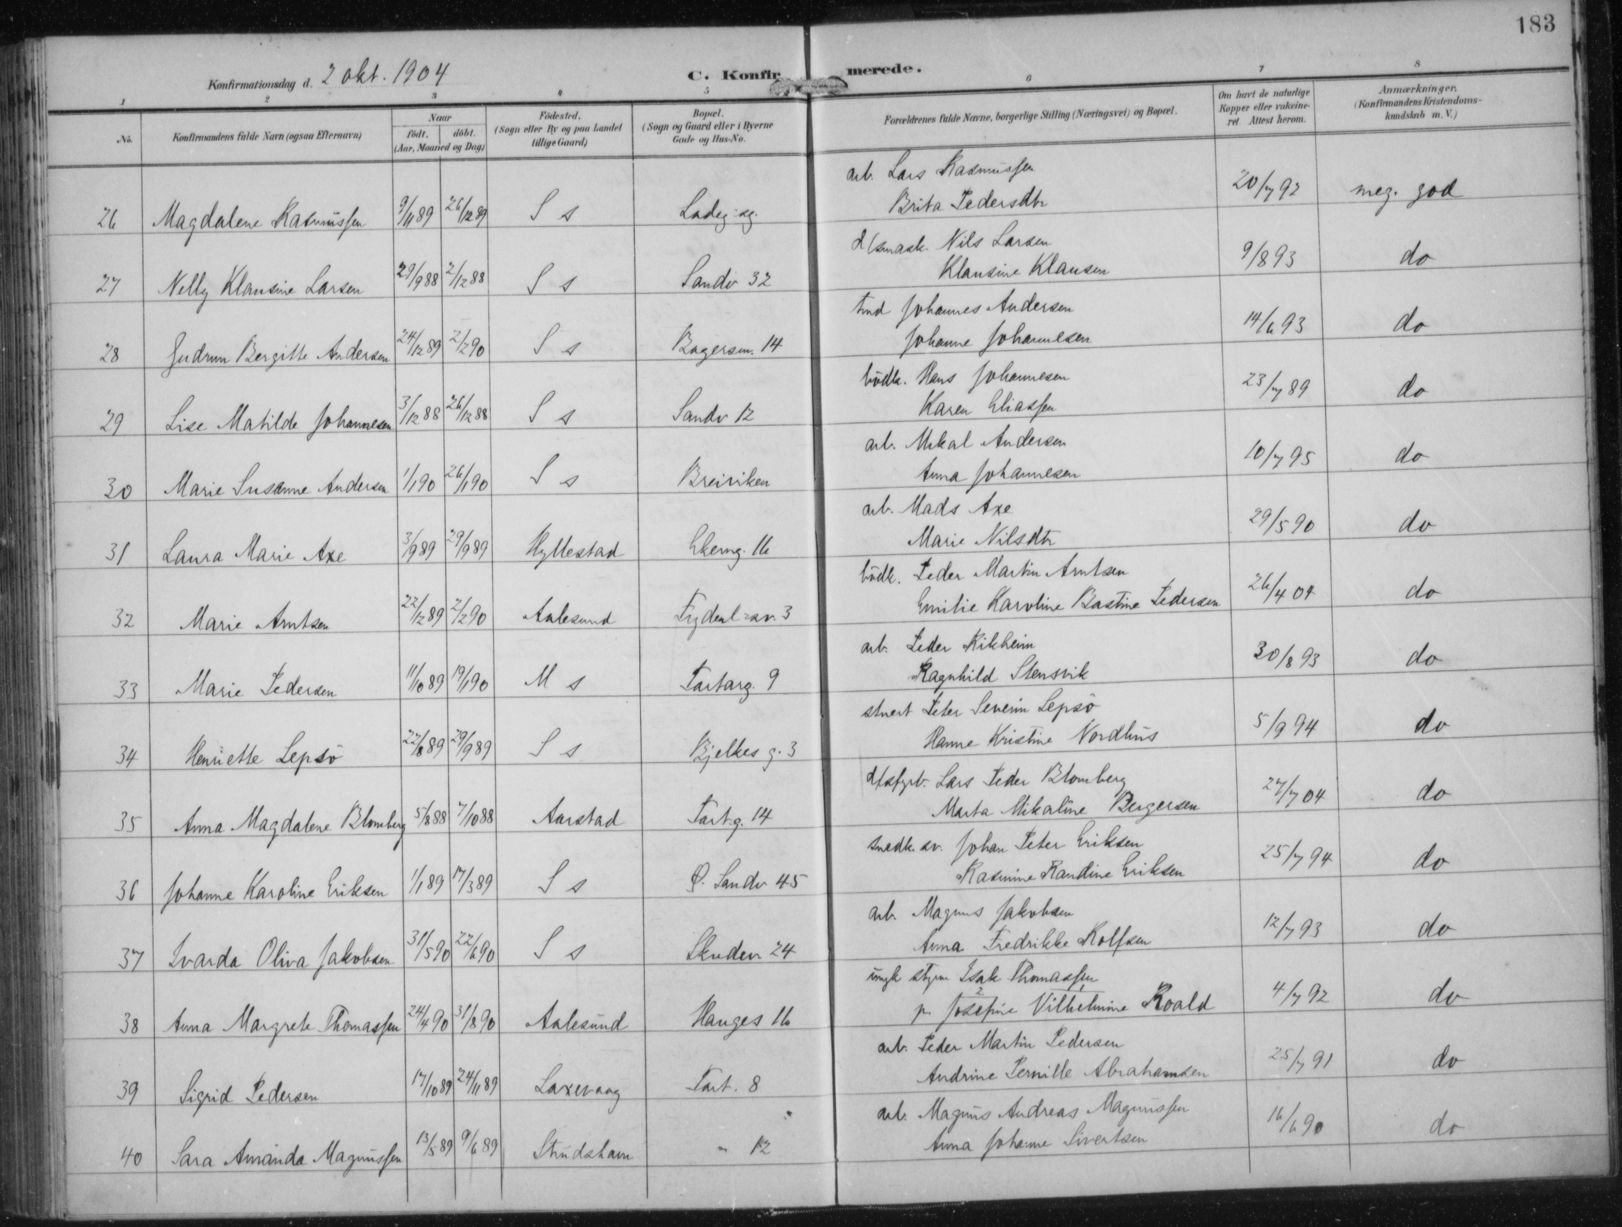 183
Konfirmationsdag d. 2 okt. 1904
C. Konfirmerede.
1 2 3 4 5 6 7 8
No.
Konfirmandens fulde Navn (ogsaa Efternavn)
Naar
født. døbt.
(Aar, Maaned og Dag)
Fødested.
(Sogn eller By og paa Landet
tillige Gaard)
Bopæl.
(Sogn og Gaard eller i Byerne
Gade og Hus-No.
Forældrenes fulde Navne, borgerlige Stilling (Næringsvei) og Bopæl.
Om havt de naturlige
Kopper eller vaksine-
ret Attest herom.
Anmærkninger.
(Konfirmandens Kristendoms-
kundskab m. V.)
arb. Lars Rasmussen
26 Magdalene Rasmussen 9/11 89 26/12 89 S s Ladeg: Brita Pedersdtr 20/7 92 meg. god
Nils Larsen
27 Nelly Klausine Larsen 29/9 88 2/12 88 S s Sandv 32 Klausine Klausen 9/8 93 do
Johannes Andersen
28 Gudrun Bergitte Andersen 24/12 89 2/2 90 S s Bagersm. 14 Johanne Johannesen 14/6 93 do
bødk. Hans Johannesen
29 Lise Matilde Johannesen 3/12 88 26/12 88 S s Sandv 12 Karen Eliassen 23/7 89 do
arb. Mikal Andersen
30 Marie Susanne Andersen 1/1 90 26/1 90 S s Breiviken Anna Johannesen 10/7 95 do
arb. Mads Axe
31 Laura Marie Axe 3/9 89 29/9 89 Hyllestad Ekerng. 16 Marie Nilsdtr 29/5 90 do
bødk. Peder Martin Arntsen
32 Marie Arntsen 22/12 89 2/2 90 Aalesund 3 Emilie Karoline Bastine Pedersen 26/4 04 do
arb. Peder Kikheim
33 Marie Pedersen 11/10 89 19/1 90 M s Tartarg. 9 Ragnhild Stensvik 30/8 93 do
stuert Peter Severin Lepsö
34 Henriette Lepsö 22/8 89 29/9 89 S s Bjelkes g. 3 Hanne Kristine Nordhus 5/9 94 do
Lars Peder Blomberg
35 Anna Magdalene Blomberg 5/8 88 7/10 88 Aarstad Tart.g. 14 Marta Mikaline Bergersen 27/7 04 do
snedk. sv. Johan Peter Eriksen
36 Johanne Karoline Eriksen 1/1 89 17/3 89 S s Ø. Sandv 45 Rasmine Randine Eriksen 25/7 94 do
arb. Magnus Jakobsen
37 Svarda Oliva Jakobsen 31/5 90 22/6 90 S s Skudev 24 Anna Fredrikke Rolfsen 12/7 93 do
ungk styrm Isak Thomassen
38 Anna Margrete Thomassen 24/4 90 31/8 90 Aalesund Hauges 16 p. Josefine Vilhelmine Roald 4/7 92 do
arb. Peder Martin Pedersen
39 Sigrid Pedersen 17/10 89 24/11 89 Laxevaag Tart. 8 Andrine Pernille Abrahamsen 25/7 91 do
arb. Magnus Andreas Magnussen
40 Sara Amanda Magnussen 13/5 89 9/6 89 Strudshavn " 12 Anna Johanne Sivertsen 16/6 90 do